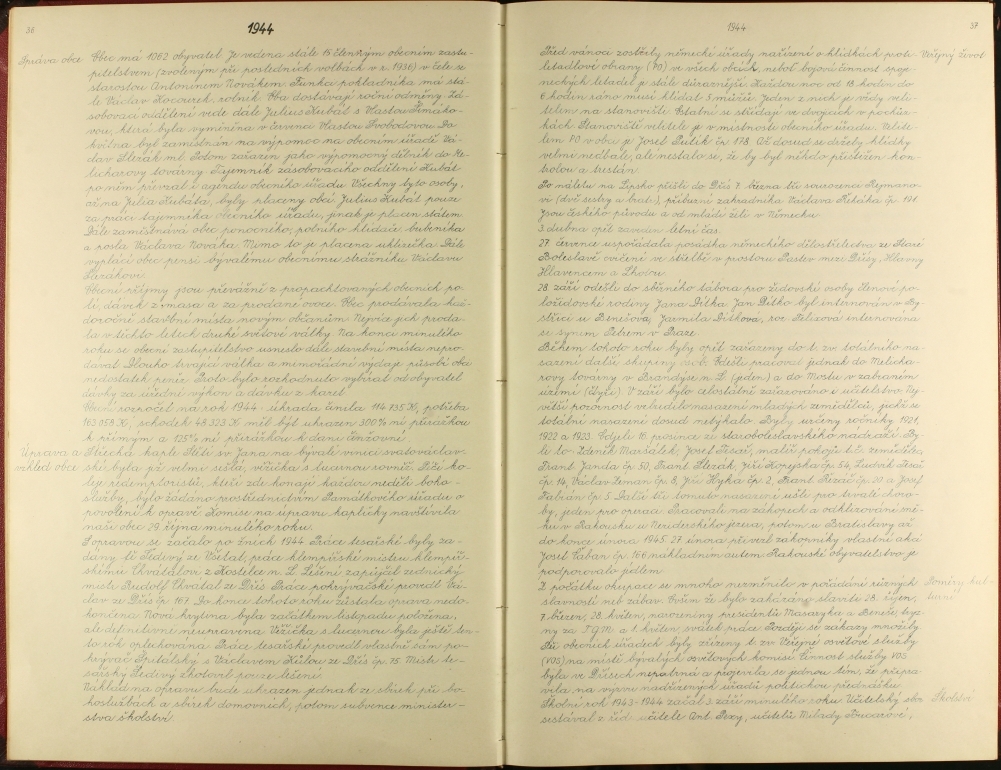 36
1944
Správa obce
Obec má 1062 obyvatel. Je vedena stále 15 členným obecním zasta-
pitelstvem (zvoleným při posledních volbách v r. 1936) v čele se
starostou Antonínem Novákem. Funkci pokladníka má stá-
le Václav Kocourek, rolník. Oba dostávají roční odměny. Zá-
sobovací oddělení vede dále Julius Kubát s Vlastou Šimáko-
vou, která byla vyměněna v červenci Vlastou Svobodovou. Do
května byl zaměstnán na výpomoc na obecním úřadě Vá-
clav Slezák ml. Potom zařazen jako výpomocný dělník do Me-
licharovy továrny. Tajemník zásobovacího oddělení Kubát
po něm převzal i agendu obecního úřadu. Všechny tyto osoby,
až na Julia Kubáta, byly placeny obcí. Julius Kubát pouze
za práci tajemníka obecního úřadu, jinak je placen státem.
Dále zaměstnává obec ponocného, polního hlídače, bubeníka
a posla Václava Nováka. Mimo to je placena uklizečka. Dále
vyplácí obec pensi bývalému obecnímu strážníku Václavu
Slezákovi.
Obecní příjmy jsou převážně z propachtovaných obecních po-
lí, dávek z masa a za prodané ovoce. Obec prodávala kaž-
doročně stavební místa novým občanům. Nejvíce jich proda-
la v těchto letech druhé světové války. Na konci minulého
roku se obecní zastupitelstvo usneslo dále stavební místa nepro-
dávat. Dlouho trvající válka a mimořádné výdaje působí oba
nedostatek peněz. Proto bylo rozhodnuto vybírat od obyvatel
dávky za úřední výkon a dávku z karet.
Obecní rozpočet na rok 1944: úhrada činila 114 735 K, potřeba
163 058 K, schodek 48 323 K měl být uhrazen 300% ní přirážkou
k přímým a 125% ní přirážkou k dani činžovní.
Úprava a
vzhled obce
Střecha kaple Stětí sv. Jana na bývalé vinici svatováclav-
ské byla již velmi sešlá, věžička s lucernou rovněž. Péčí ko-
leje redemptoristů, kteří zde konají každou neděli boho-
služby, bylo žádáno prostřednictvím Památkového úřadu o
povolení k opravě. Komise na úpravu kapličky navštívila
naši obec 29. října minulého roku.
S opravou se začalo po žních 1944. Práce tesařské byly za-
dány fi. Šedivý ze Všetat, práce klempířské mistru klempíř-
skému Chvátalovi z Kostelce n. L. Lešení zapůjčil zednický
mistr Rudolf Chvátal ze Dřís. Práce pokrývačské provedl Vá-
clav ze Dřís čp. 167. Do konce tohoto roku zůstala oprava nedo-
končena. Nová krytina byla začátkem listopadu položena,
ale definitivně neupravena. Věžička s lucernou byla ještě ten-
to rok oplechována. Práce tesařské provedl vlastně sám po-
krývač Špitálský s Václavem Kůlou ze Dřís čp. 75. Mistr te-
sařský Šedivý zhotovil pouze lešení.
Náklad na opravu bude uhrazen jednak ze sbírek při bo-
hoslužbách a sbírek domovních, potom subvence minister-
stva školství.
1944
37
Veřejný život
Před vánoci zostřily německé úřady nařízení o hlídkách proti-
letadlové obrany (PO) ve všech obcích, neboť bojová činnost spoje-
neckých letadel je stále důraznější. Každou noc od 18 hodin do
6 hodin ráno musí hlídat 5 mužů. Jeden z nich je vždy veli-
telem na stanovišti. Ostatní se střídají ve dvojicích v pochůz-
kách. Stanoviště velitele je v místnosti obecního úřadu. Velite-
lem PO v obci je Josef Putík čp. 178. Až dosud se držely hlídky
velmi nedbale, ale nestalo se, že by byl někdo přistižen kon-
trolou a trestán.
Po náletu na Lipsko přišli do Dřís 7. března tři sourozenci Rejmano-
vi (dvě sestry a bratr), příbuzní zahradníka Václava Řeháka čp. 191.
Jsou českého původu a od mládí žili v Německu.
3. dubna opět zaveden letní čas.
27. července uspořádala posádka německého dělostřelectva ze Staré
Boleslavě cvičení ve střelbě v prostoru Pustev mezi Dřísy, Hlavny
Hlavencem a Lhotou.
28. září odešli do sběrného tábora pro židovské osoby členové po-
loředovské rodiny Jana Ditka. Jan Ditko byl internován v By-
střici u Benešova, Jarmila Ditková, roz. Felixová internována
se synem Petrem v Praze.
Během tohoto roku byly opět zařazeny do t. zv. totálního na-
sazení další skupiny osob. Odešli pracovat jednak do Melicha-
rovy továrny v Brandýse n. L. (jeden) a do Mostu v zabraném
území (čtyři). V září bylo celostátně zařazováno i učitelstvo. Nej-
větší pozornost vzbudilo nasazení mladých zemědělců, jichž se
totální nasazení dosud netýkalo. Byly určeny ročníky 1921,
1922 a 1923. Odjeli 16. prosince ze staroboleslavského nádraží. By-
li to: Zdeněk Maršálek, Josef Tesař, malíř pokojů t. č. zemědělec,
Frant. Janda čp. 50, Frant. Slezák, Jiří Kopejska čp. 54, Ludvík Tesař
čp. 14, Václav Zeman čp. 8, Jiří Hyka čp. 2, Frant. Řezáč čp. 20 a Josef
Fabián čp. 5. Další tři tomuto nasazení ušli pro trvalé choro-
by, jeden pro operaci. Pracovali na zákopech a odklizování sně-
hu v Rakousku u Neziderského jezera, potom u Bratislavy až
do konce února 1945. 27. února převzal zákopníky vlastní akcí
Josef Kaban čp. 166 nákladním autem. Rakouské obyvatelstvo je
podporovalo jídlem.
Poměry kul-
turní
Z počátku okupace se mnoho nezměnilo v pořádání různých
slavností neb zábav. Ovšem že bylo zakázáno slavit 28. říjen,
7. březen, 28. květen, narozeniny presidentů Masaryka a Beneše, tryz-
ny za T.G.M. a 1. květen, svátek práce. Později se zákazy množily.
Při obecních úřadech byly zřízeny t. zv. Veřejné osvětové služby
(VOS) na místě bývalých osvětových komisí. Činnost služby VOS
byla ve Dřísech nepatrná a projevila se jednou tím, že připra-
vila na výzvu nadřízených úřadů politickou přednášku.
Školství
Školní rok 1943-1944 začal 3. září minulého roku. Učitelský sbor
sestával z říd. učitele Ant. Pexy, učitelů Milady Koucarové,